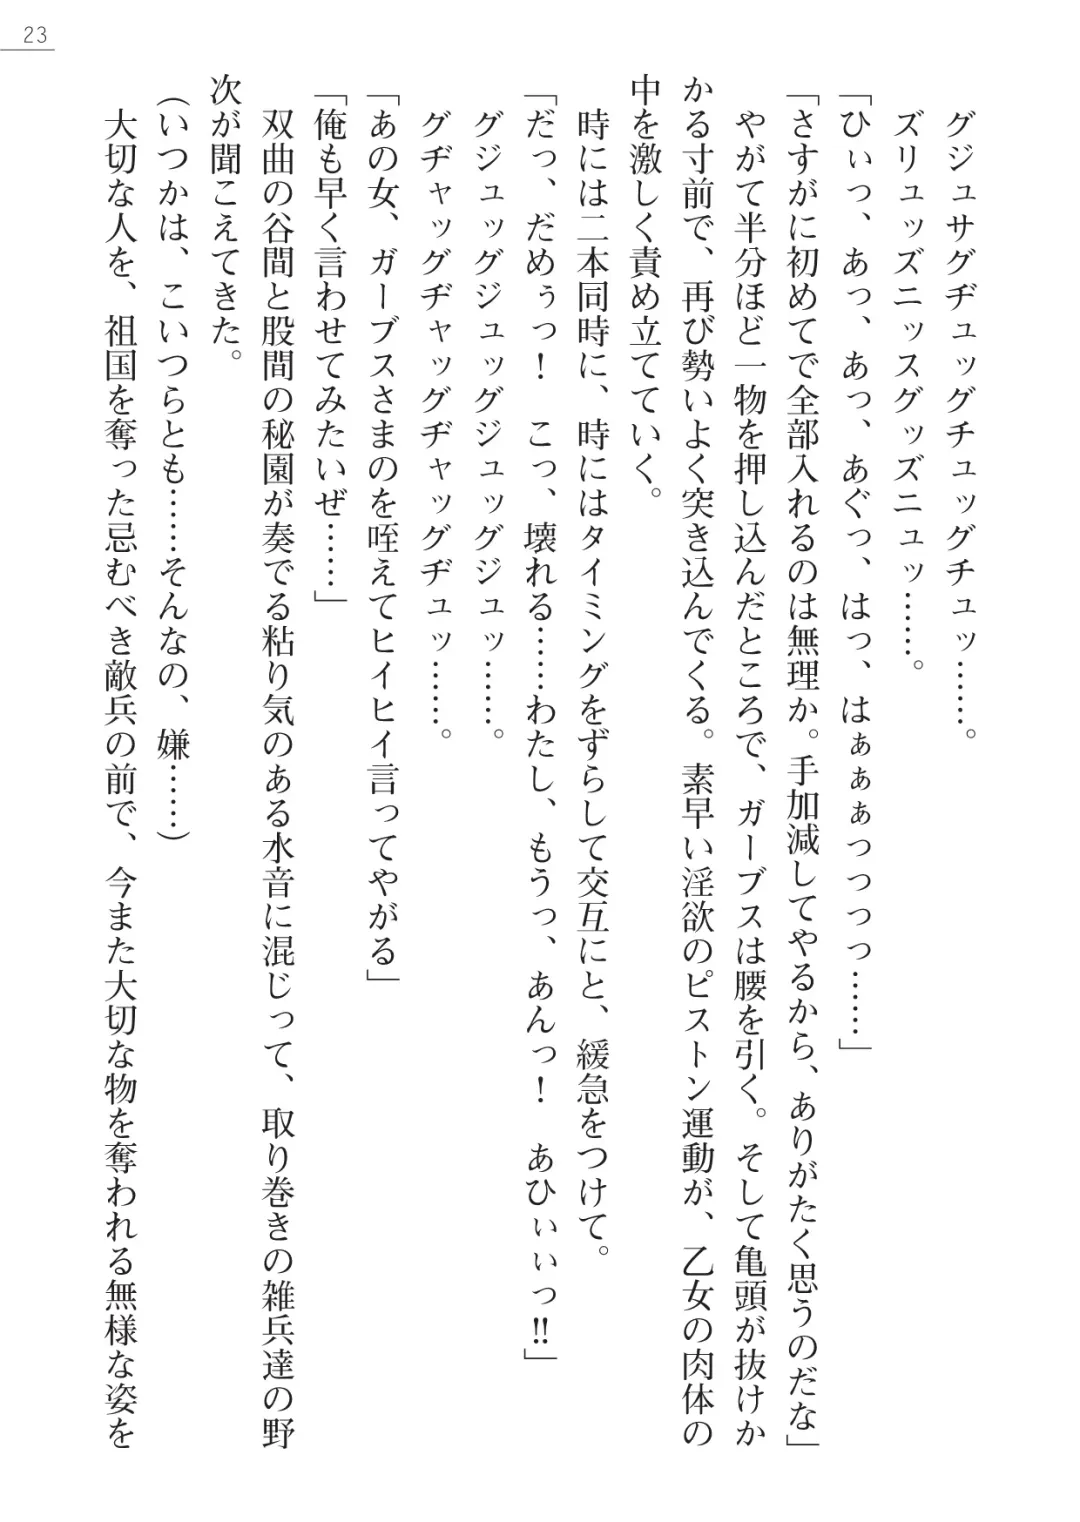 23
グジュサグヂュッグチュッグチュッ……。
ズリュッズニッスグッズニュッ……。
「ひぃっ、あっ、あっ、あぐっ、はっ、はぁぁぁっっっっ……」
「さすがに初めてで全部入れるのは無理か。手加減してやるから、ありがたく思うのだな」
やがて半分ほど一物を押し込んだところで、ガーブスは腰を引く。そして亀頭が抜けか
かる寸前で、再び勢いよく突き込んでくる。素早い淫欲のピストン運動が、乙女の肉体の
中を激しく責め立てていく。
時には二本同時に、時にはタイミングをずらして交互にと、緩急をつけて。
「だっ、だめぅっ！　こっ、壊れる……わたし、もうっ、あんっ！　あひぃぃっ!!」
グジュッグジュッグジュッグジュッ……。
グヂャッグヂャッグヂャッグヂュッ……。
「あの女、ガーブスさまのを咥えてヒイヒイ言ってやがる」
「俺も早く言わせてみたいぜ……」
双曲の谷間と股間の秘園が奏でる粘り気のある水音に混じって、取り巻きの雑兵達の野
次が聞こえてきた。
（いつかは、こいつらとも……そんなの、嫌……）
大切な人を、祖国を奪った忌むべき敵兵の前で、今また大切な物を奪われる無様な姿を